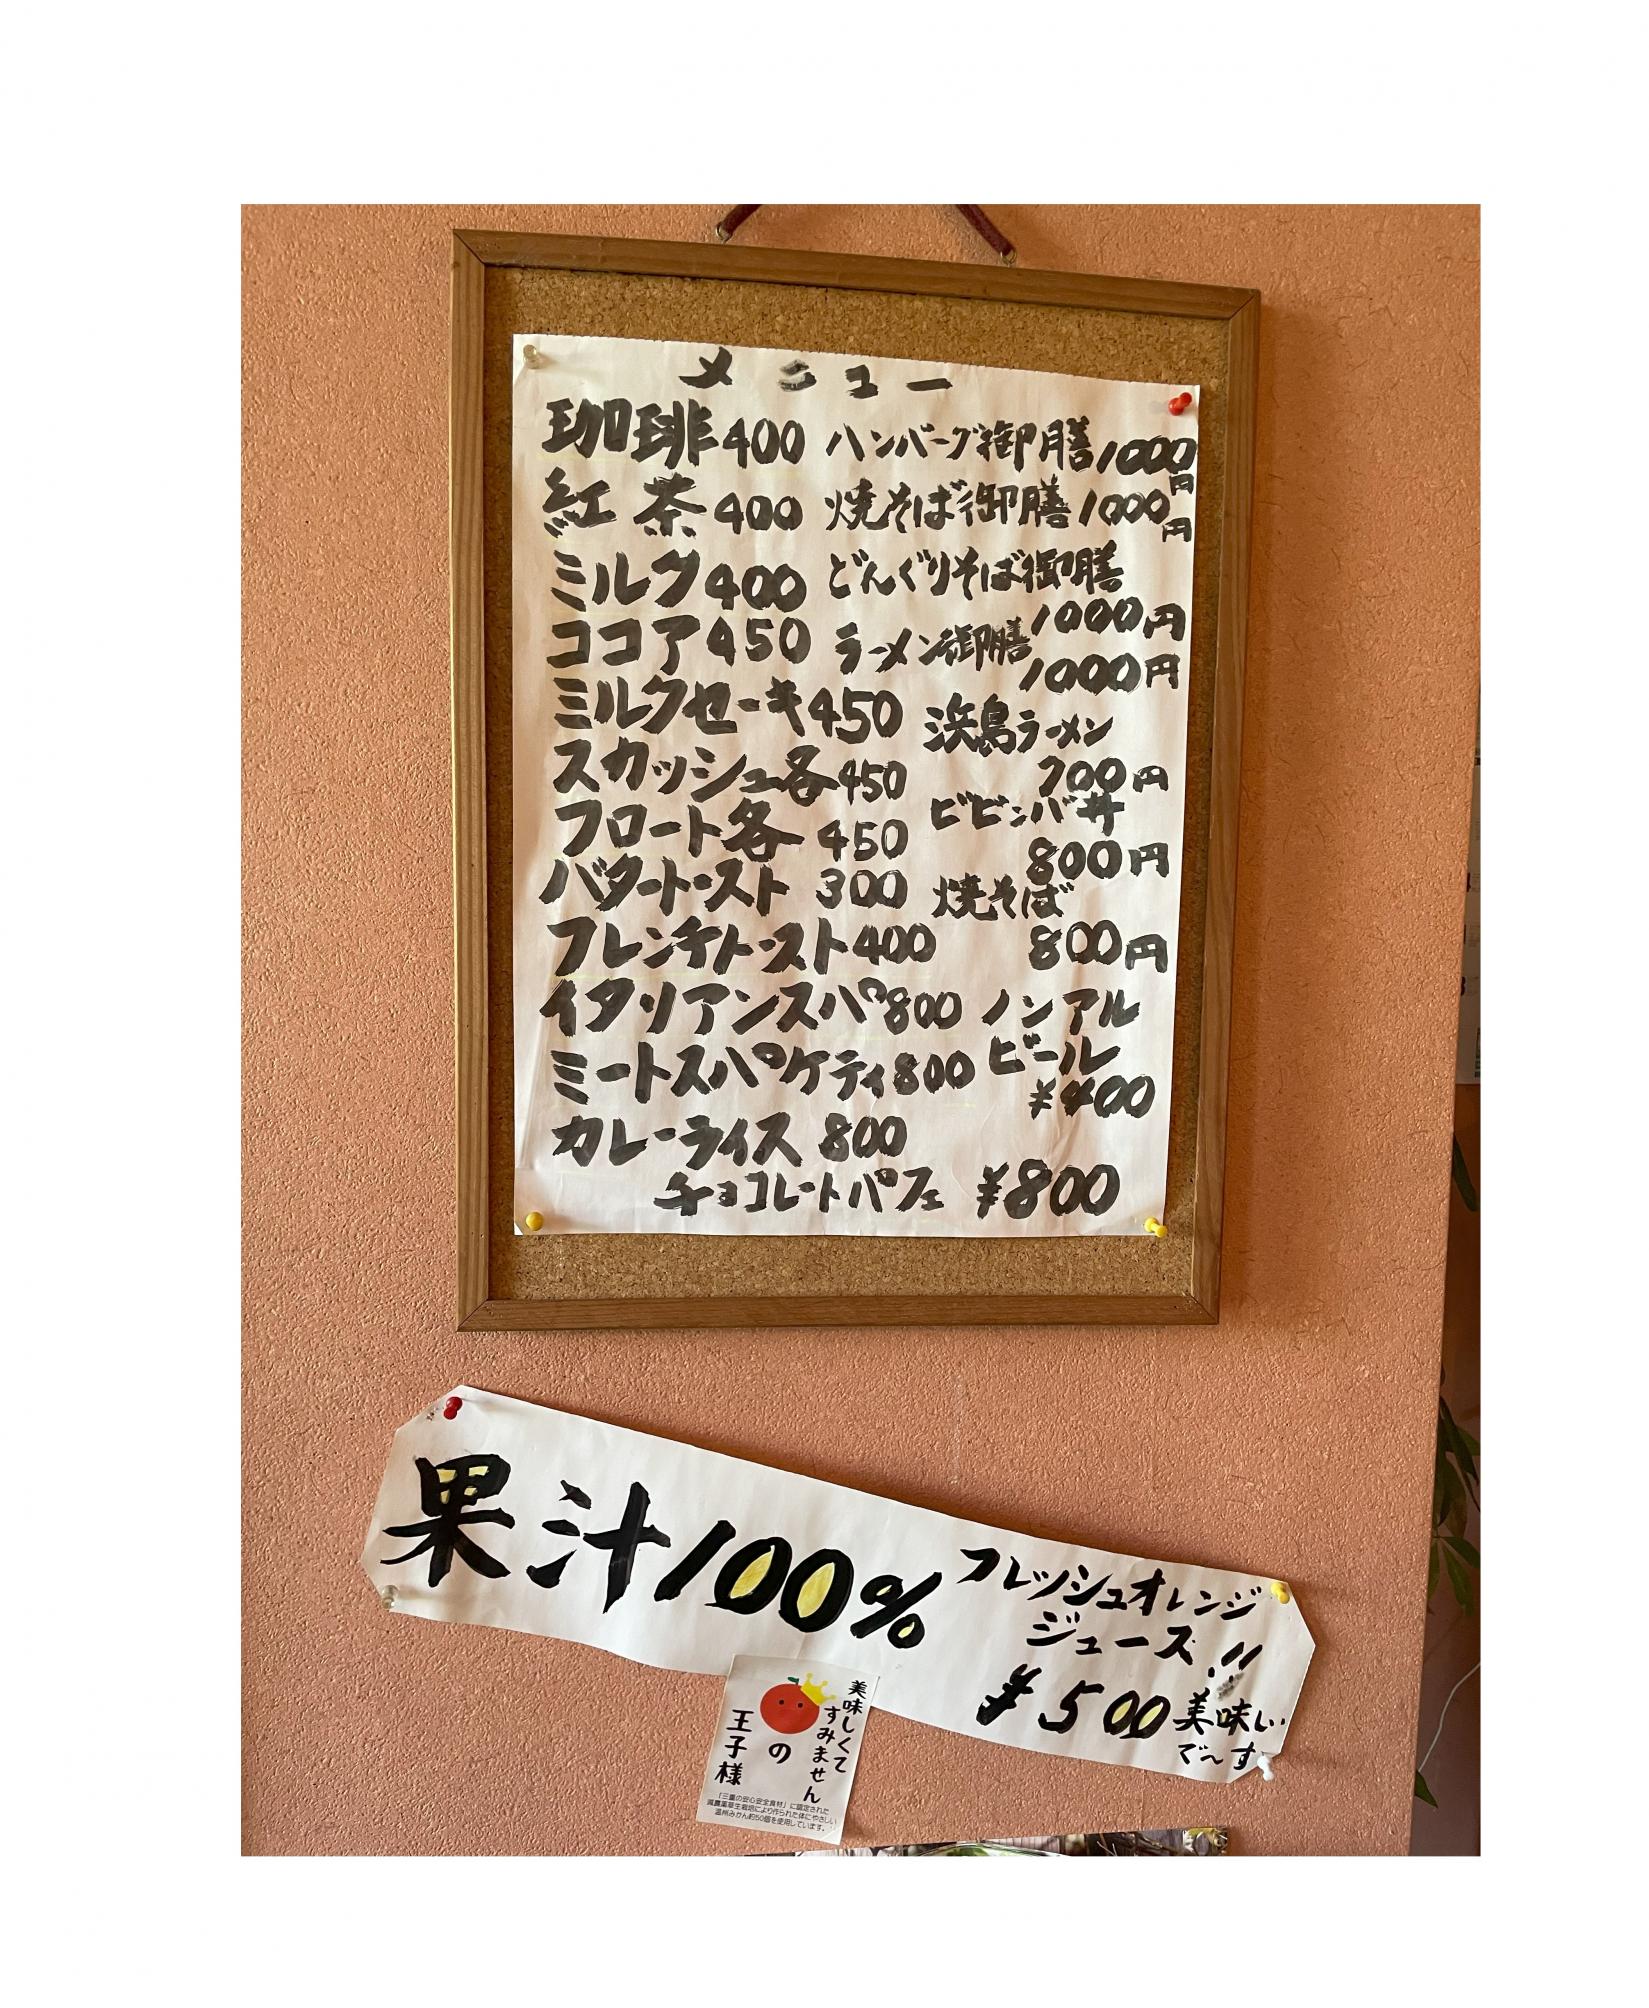 メニュー
珈琲400
紅茶400
ミルク400
ココア450
ミルクセーキ450
スカッシュ各450
フロート各450
バタートースト300
フレンチトースト400
イタリアンスパ800
ミートスパケティ800
カレーライス800
チョコレートパフェ ¥800
ハンバーグ御膳1000円
焼そば御膳1000円
どんぐりそば御膳
1000円
ラーメン御膳
1000円
浜島ラーメン
700円
ビビンバ丼
800円
焼そば
800円
ノンアル
ビール
¥400
果汁100%
フレッシュオレンジ
ジュース!!
¥500美味い
で〜す
美味しくて
すみません
の
王子様
「三重の安心安全食材」に認定された
減農薬草生栽培により作られた体にやさしい
温州みかん約50個を使用しています。